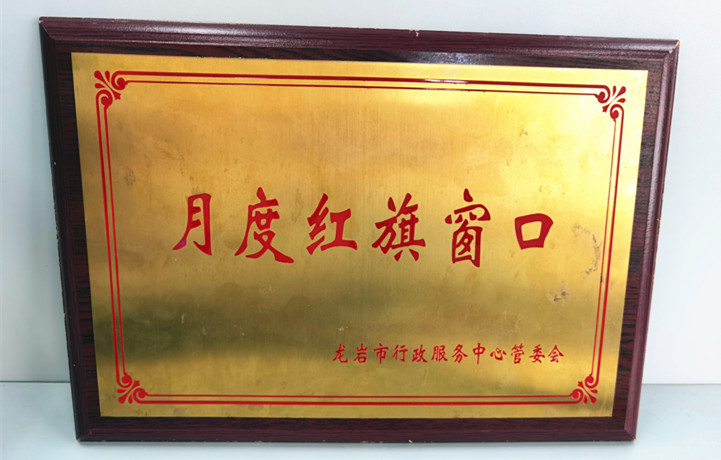 月度红旗窗口
龙岩市行政服务中心管委会